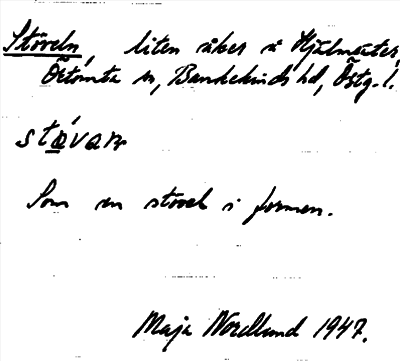 Stöveln, liten åker å Hjälmsäter,
Örtomta sn, Bankekinds hd, Östg. l.
stø̀van
Som en stövel i formen.
Maja Nordlund 1947.